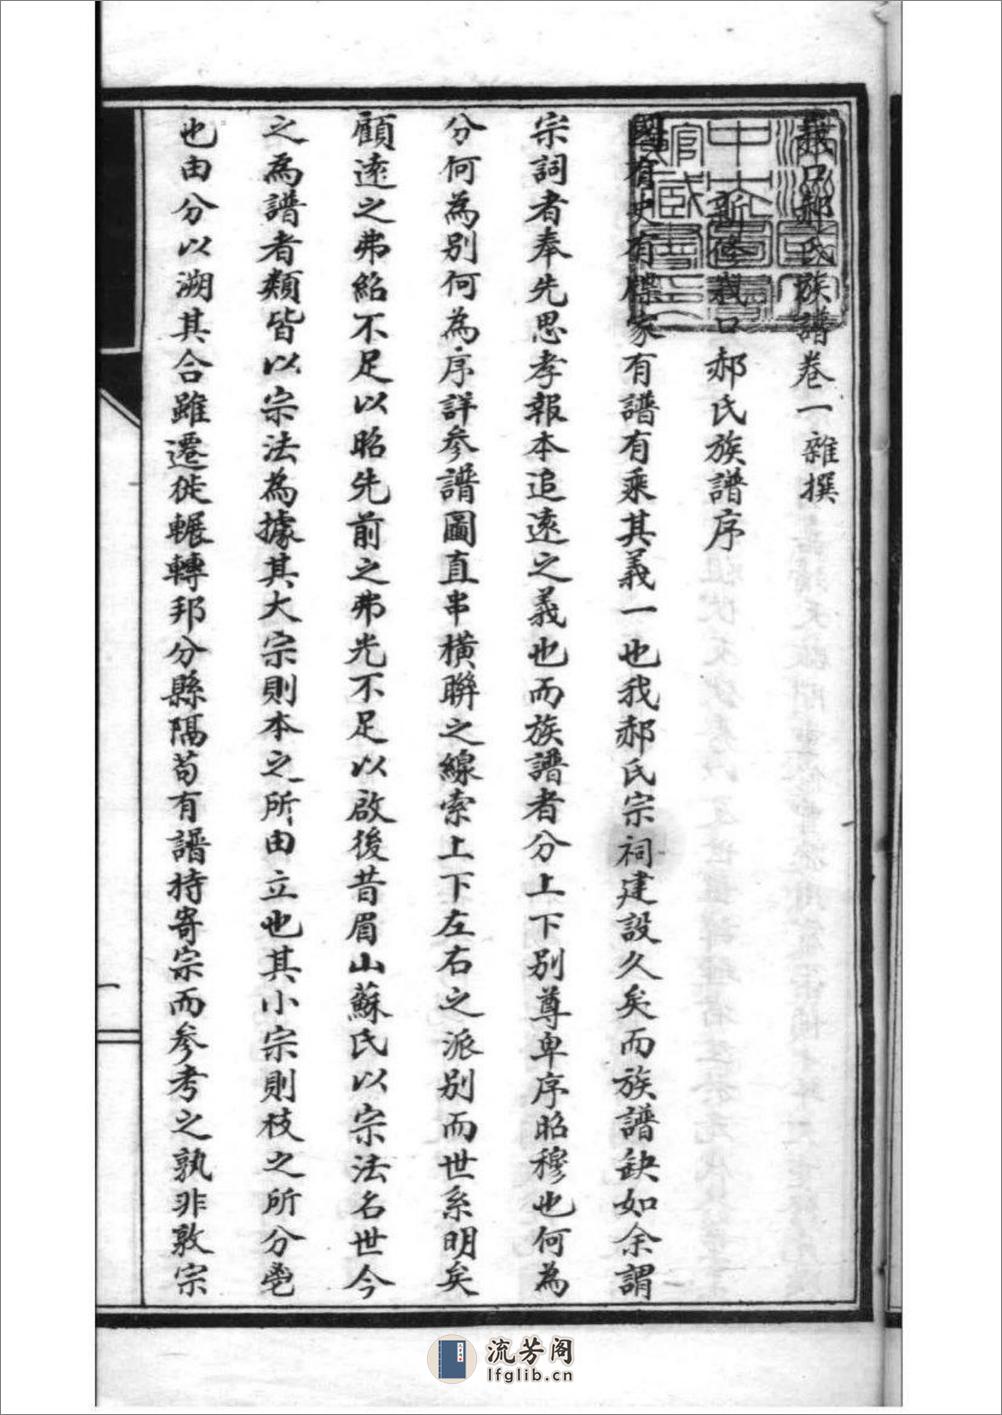 栽口郝氏族譜卷一 雜撰
新修栽口郝氏族譜序
國有史有牒家有譜有乘其義一也我郝氏宗祠建設久矣而族譜缺如余謂
宗詞者奉先思孝報本追遠之義也而族譜者分上下別尊卑序昭穆也何為
分何為別何為序詳參譜圖直串橫聯之線索上下左右之派別而世系明矣
顧遠之弗紹不足以昭先前之弗光不足以啟後昔眉山蘇氏以宗法名世今
之為譜者類皆以宗法為據其大宗則本之所由立也其小宗則枝之所分
也由分以溯其合雖遷徙輾轉邦分縣隔苟有譜持寄宗而參考之孰非敦宗
流芳阁
lfglib.cn